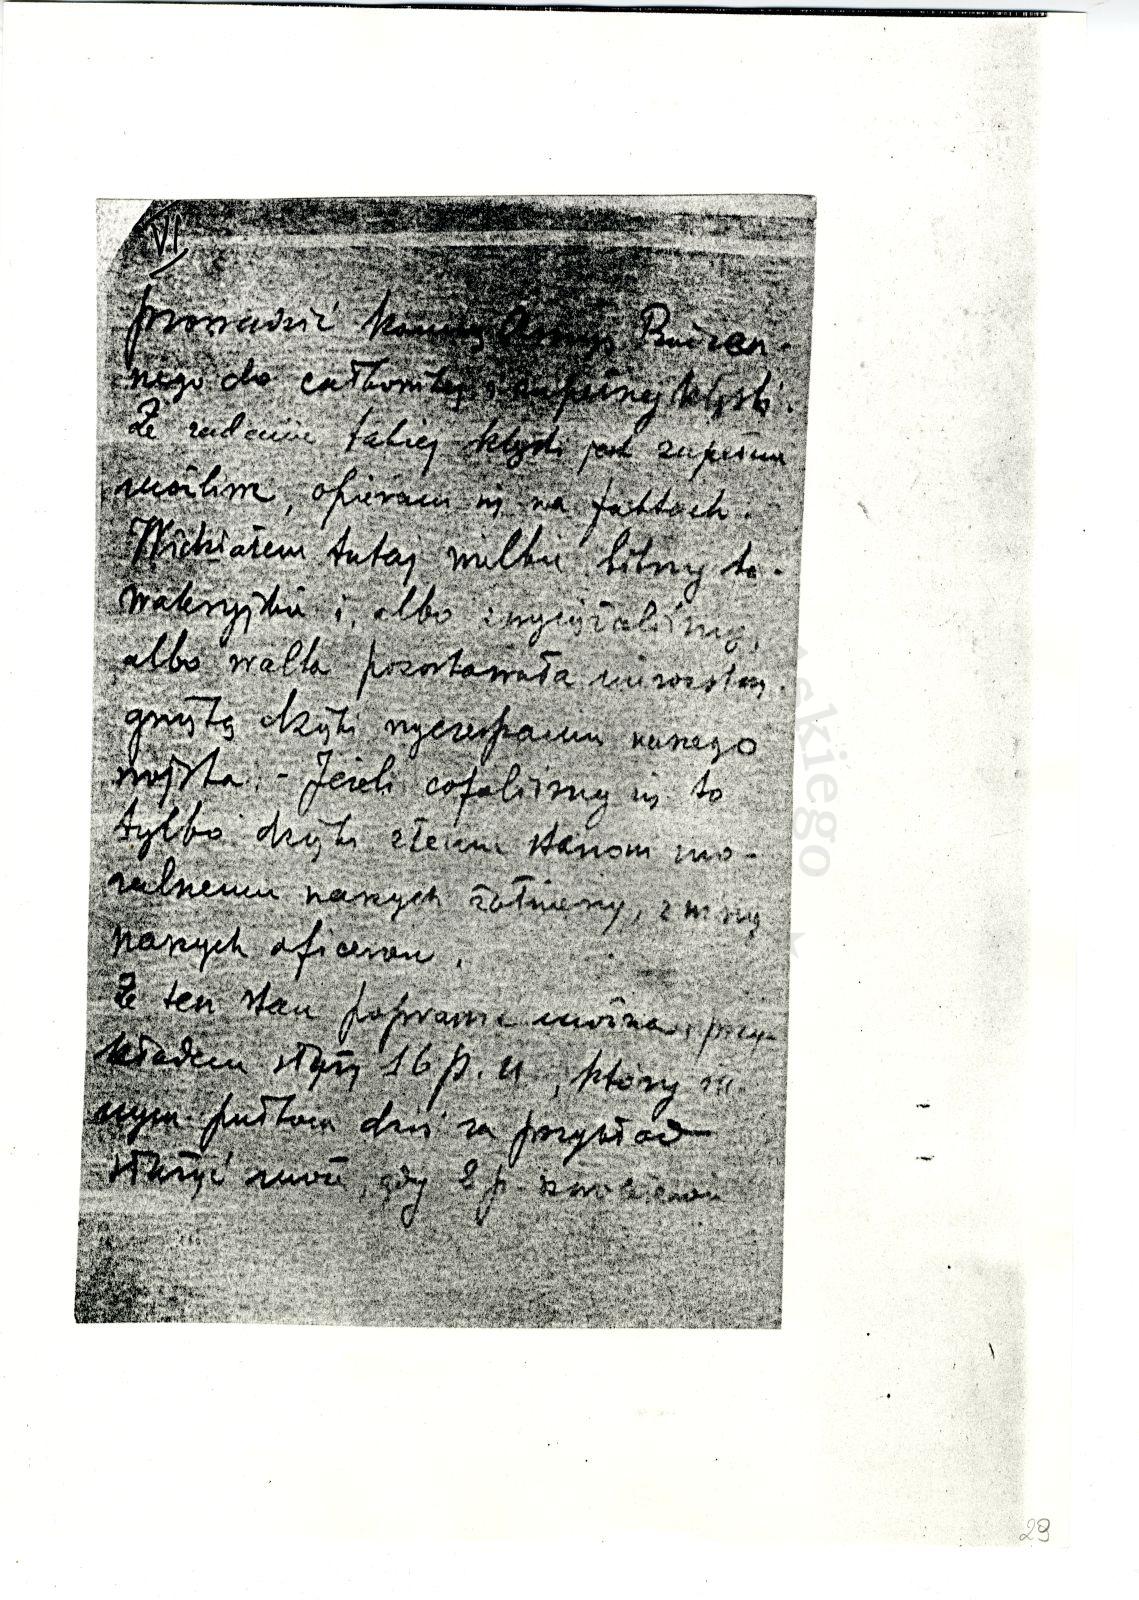 VI
prowadzić konną Armję Budzen-
nego do całkowitej i zupełnej klęski.
Że zadanie takiej klęski jest zupełnie
możliwe, opieram się na faktach.
Widziałem tutaj wielkie bitwy ka-
waleryjskie i albo zwyciężaliśmy,
albo walka pozostawała nierozstrzy-
gniętą dzięki wyczerpaniu naszego
wojska. - Jeżeli cofaliśmy się to
tylko dzięki złemu stanowi mo-
ralnemu naszych żołnierzy, z winy
naszych oficerów.
Że ten stan poprawić można, przy-
kładem służy 16 p. u., który in-
nym pułkom dziś za przykład
służyć może, gdy 2 p. szwoleżerów
skiego
29